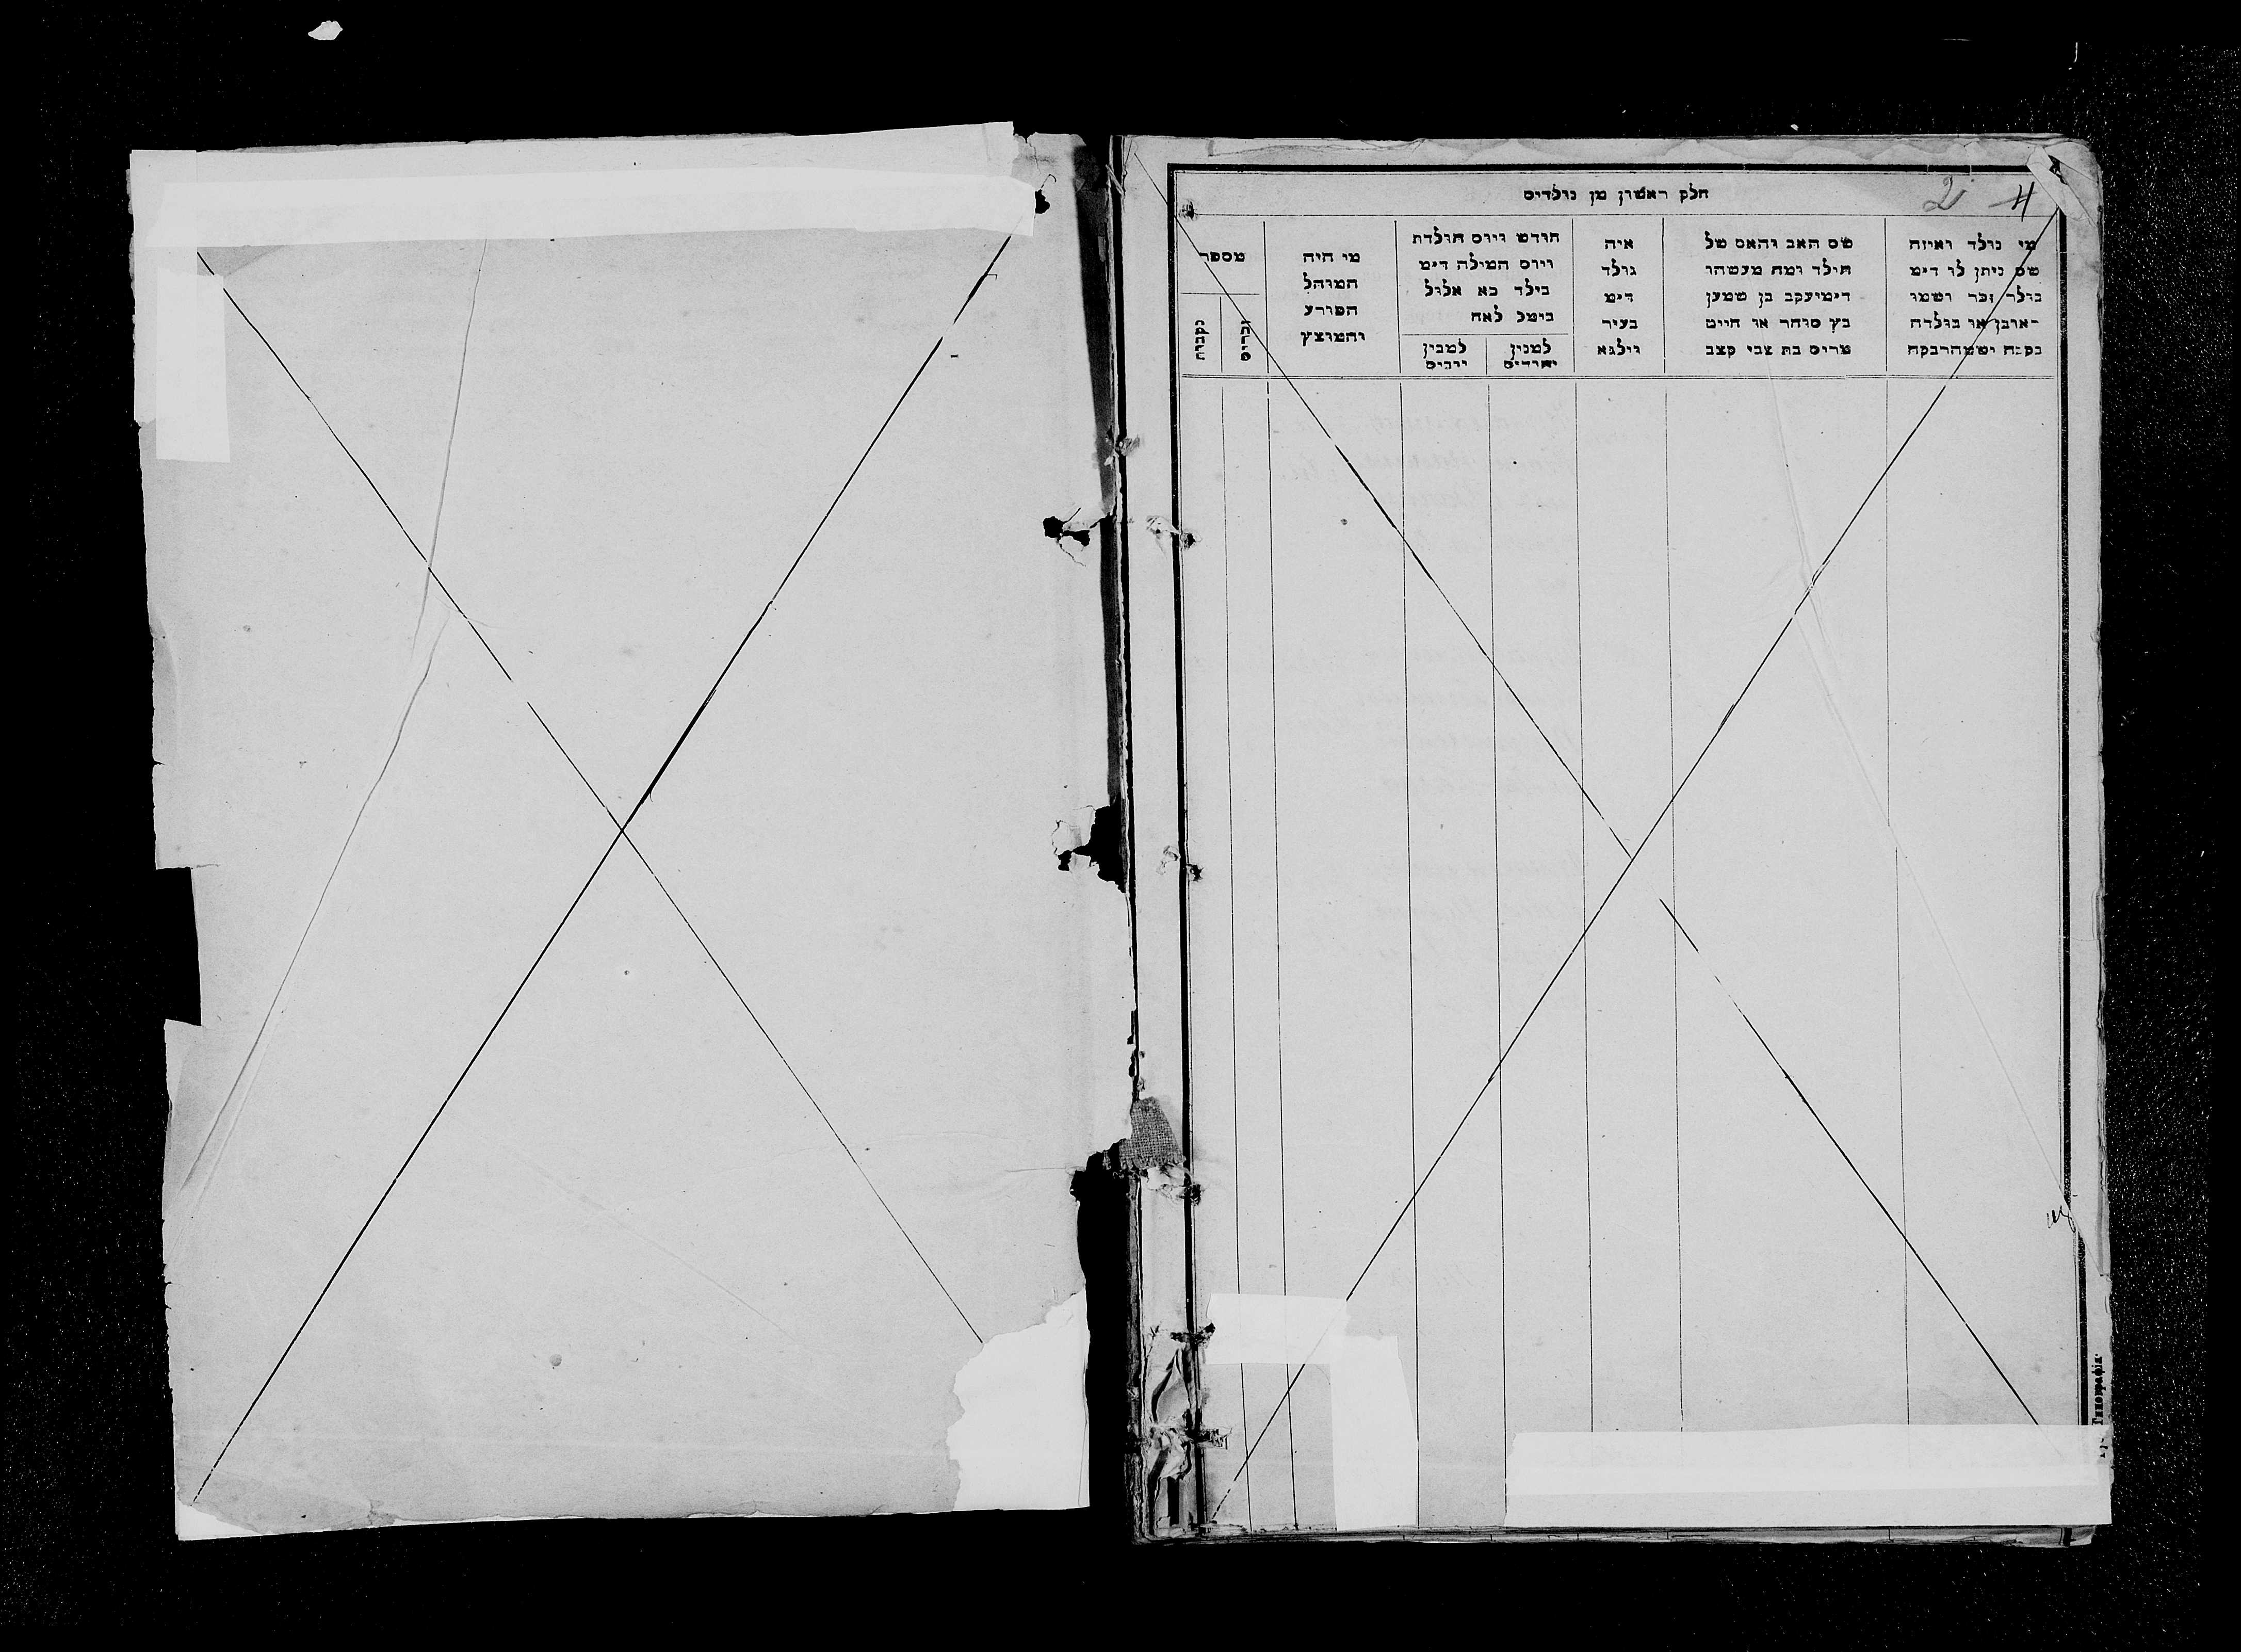 חלק ראשון מן נולדים
2 4
מי נולד ואיזה
שם ניתן לו דימ
נולד זכר ושמו
ראובן או נולדה
נקבה ושמה רבקה
שם האב והאם של
הילד ומה מעשהו
דימ יעקב בן שמען
כץ סוחר או חיים
מרים בת צבי קצב
איה
נולד
דימ
בעיר
ווילנא
חודש ויום הולדת
ויום המילה דימ
בילד כא אלול
נימל לאח
למנין
יהודים
למנין
יונים
מי היה
המוהל
הפורע
והמוצץ
מספר
זכרים
נקבות
Типографія